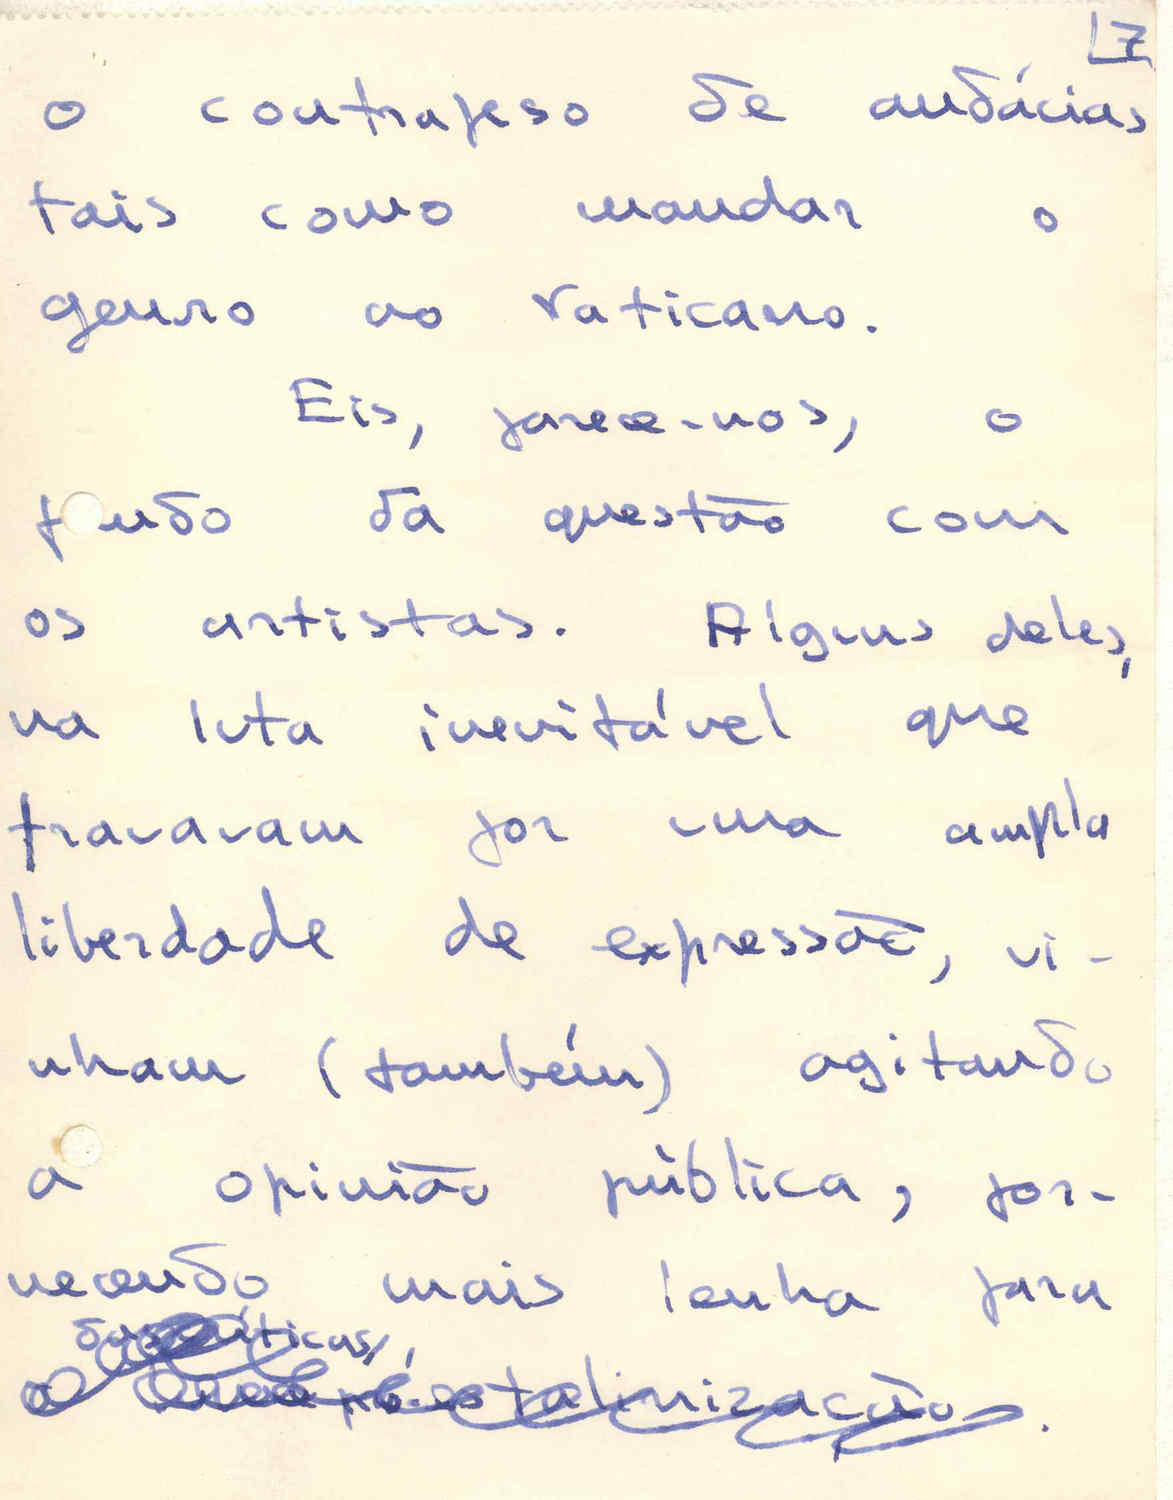 7
o contrapeso de audácias
tais como mandar o
genro ao Vaticano.
Eis, parece-nos, o
fundo da questão com
os artistas. Alguns deles,
na luta inevitável que
travavam por uma ampla
liberdade de expressão, vi-
nham (também) agitando
a opinião pública, for-
necendo mais lenha para
das críticas,
pós-estalinização.